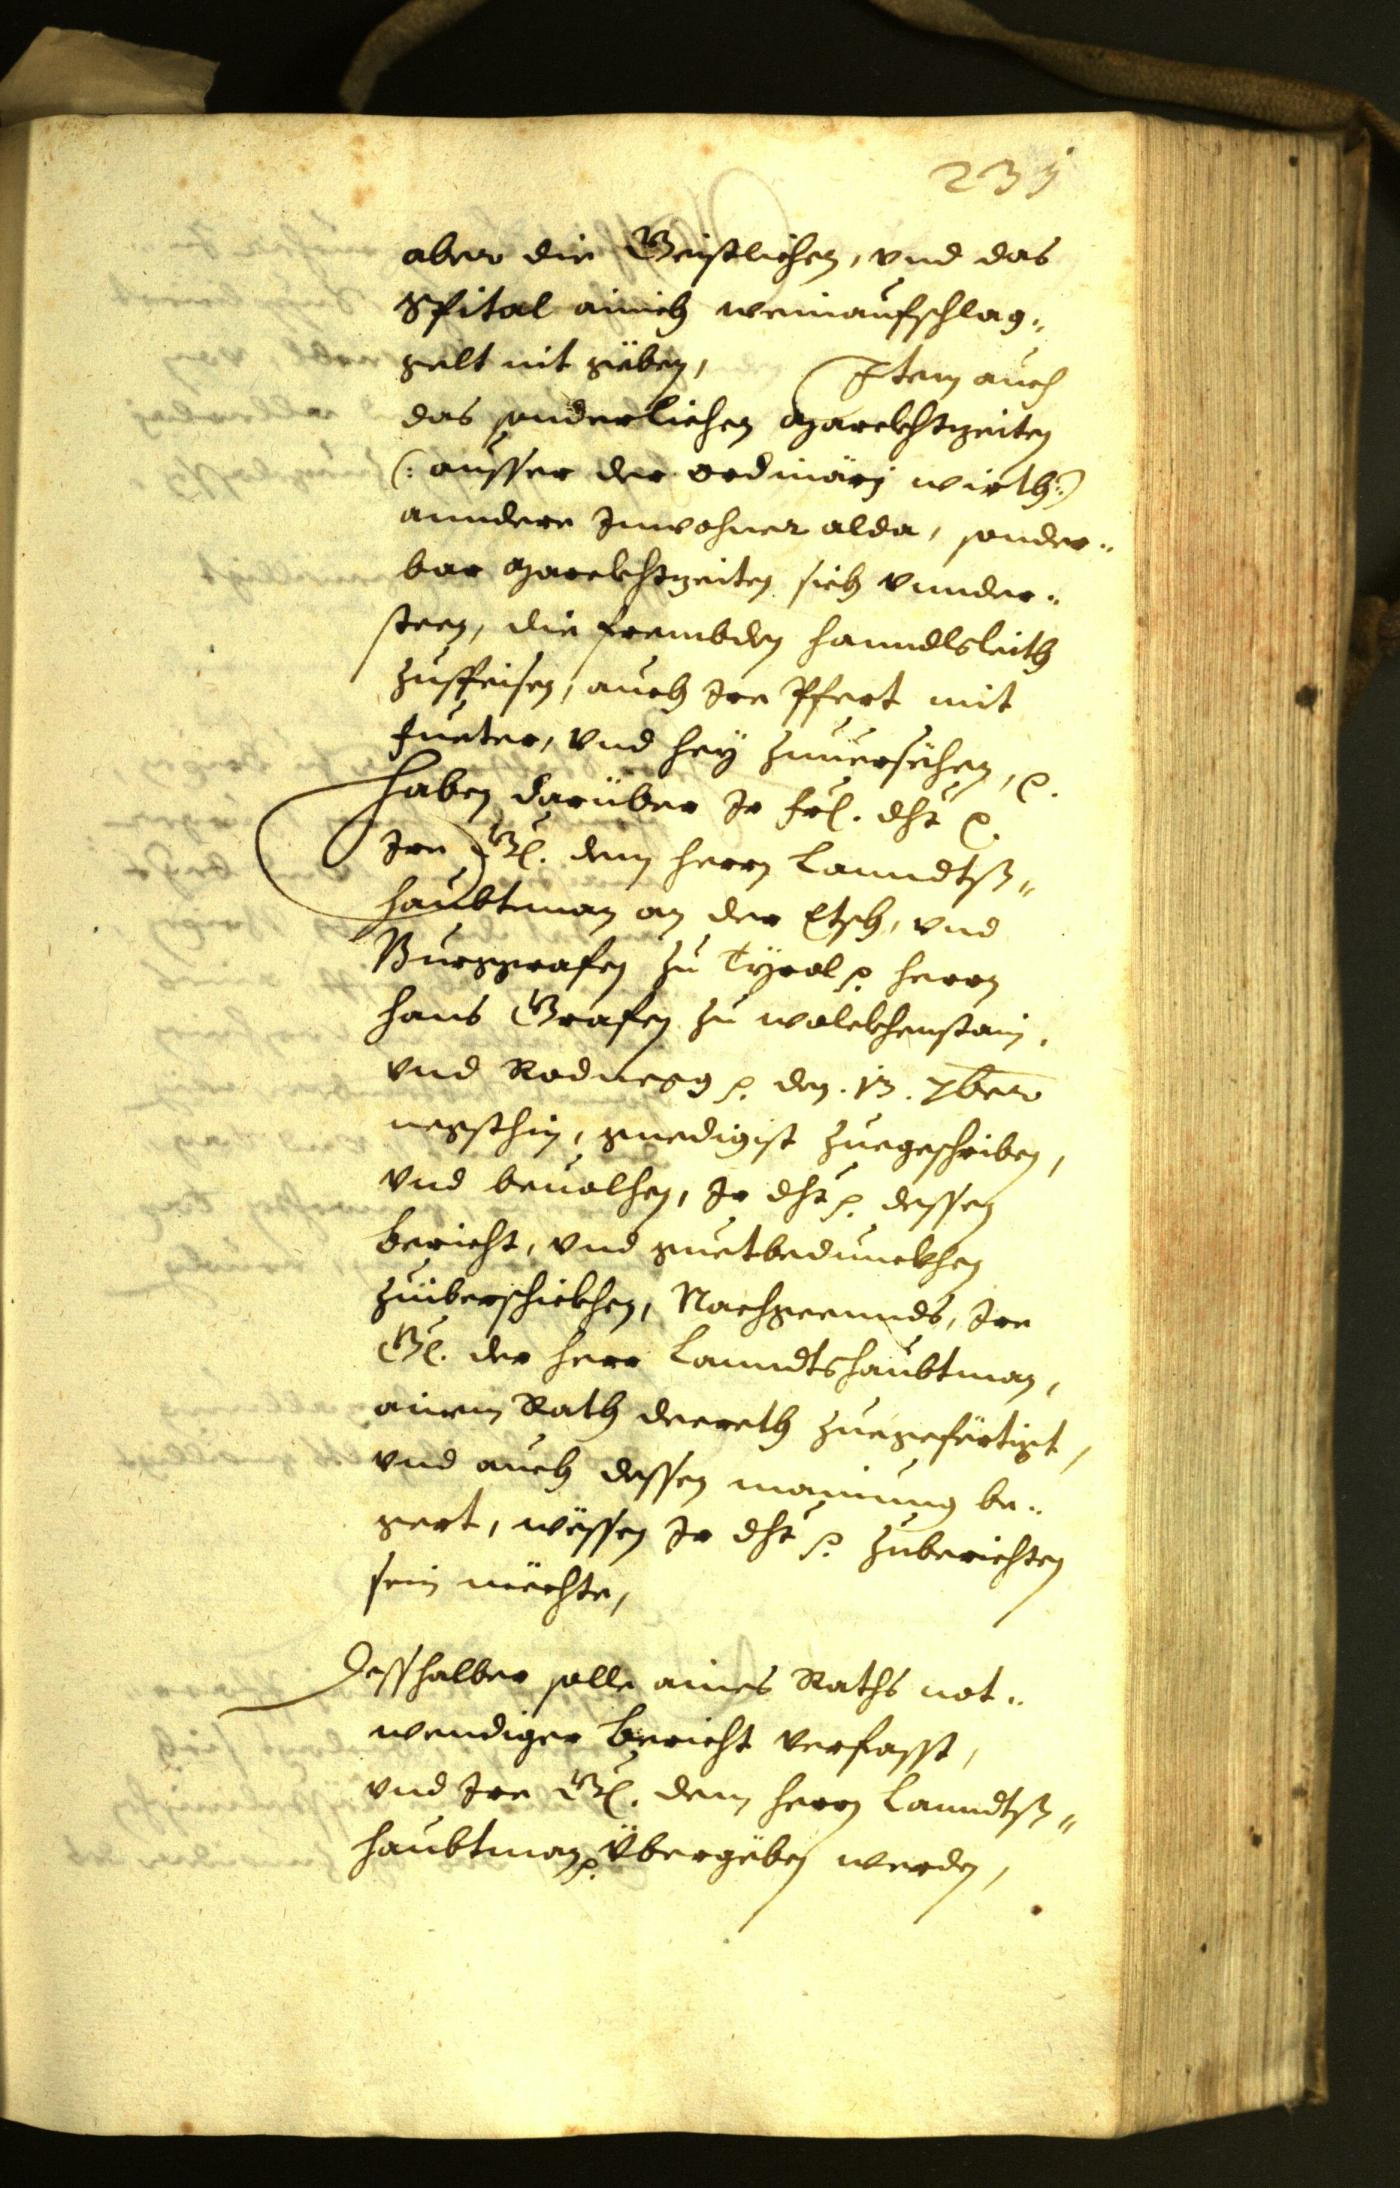 231
aber die Geistlichen, vnd das
Spital ainich weinaufschlag„
gelt nit geben, Item auch
das sonderlichen Marckhtzeiten
(: ausser der ordinari wirth :)
anndere Inwohner alda, sonder„
bar Marckhtzeiten sich vnnder„
steen, die frembden hanndlsleith
zuspeisen, auch Ire Pfert mit
fueter, vnd hey zuuersehen, ꝛc.
haben darüber Ir frl. dht ꝛc.
Irn Gl. dem herrn Lanndtß„
haubtman an der Etsch, vnd
Burggrafen zu Tyrol ꝛc. herrn
hans Grafen zu wolckhenstain,
vnd Rodnegg ꝛc. den . 13 . 7ber
negsthin, gnedigist zuegeschriben,
vnd beuolhen, Ir dht ꝛc. dessen
bericht, vnd guetbedunckhen
zuiberschickhen, Nachgeennds, Irn
Gl. der herr Lanndtshaubtman,
ainem Rath decreth zuegefertigt,
vnd auch dessen mainung be„
gert, wessen Ir dht ꝛc. zuberichten
sein mechte,
Desshalber solle aines Raths not„
wendiger bericht verfasst,
vnd Irn Gl. dem herrn Lanndtß„
haubtman ꝛc. Übergeben werden,